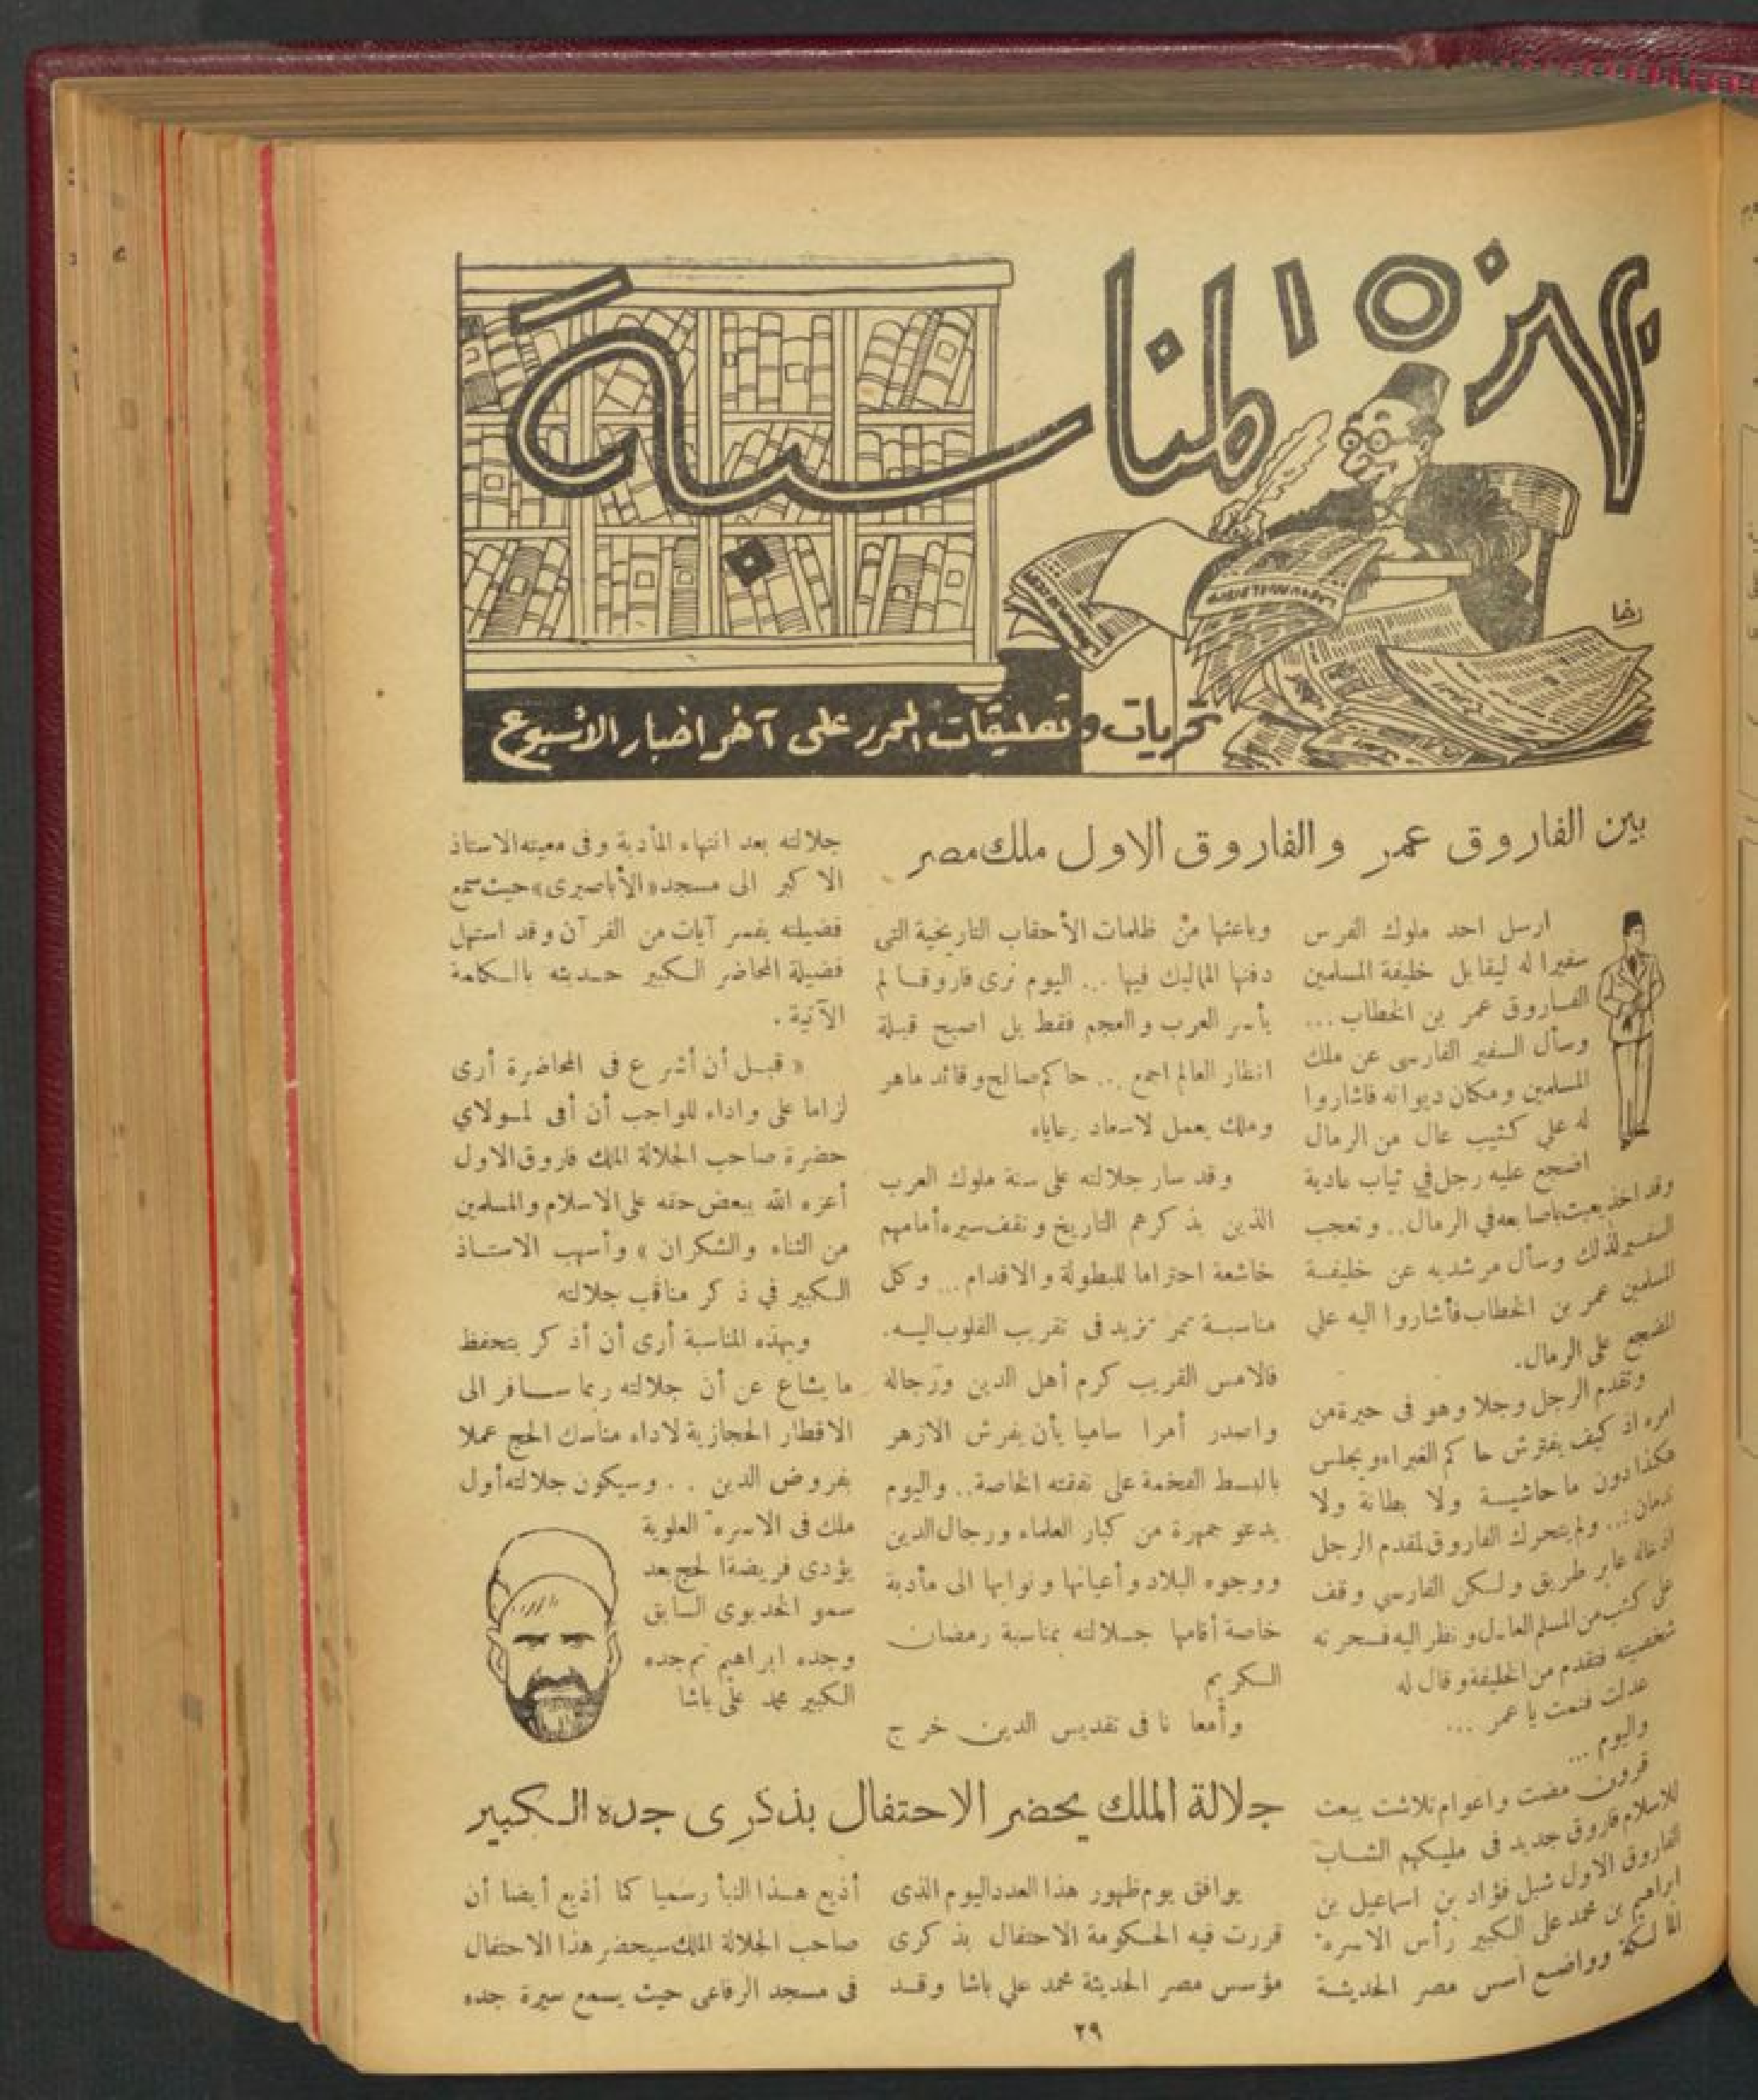 بهذه المناسبة
رخا
تحريات وتعليقات المحرر على آخر اخبار الاسبوع
بين الفاروق عمر والفاروق الاول ملك مصر
ارسل احد ملوك الفرس
سفيرا له ليقابل خليفة المسلمين
الفاروق عمر بن الخطاب ...
وسأل السفير الفارسى عن ملك
المسلمين ومكان ديوانه فاشاروا
له علي كثيب عال من الرمال
اضجع عليه رجل في ثياب عادية
وقد اخذ يعبث باصابعه في الرمال .. وتعجب
السفير لذلك وسأل مرشديه عن خليفة
المسلمين عمر بن الخطاب فأشاروا اليه علي
المضجع على الرمال.
وتقدم الرجل وجلا وهو فى حيرة من
امره اذ كيف يفترش حاكم الغبراء ويجلس
هكذا دون ما حاشية ولا بطانة ولا
ندمان ... ولم يتحرك الفاروق لمقدم الرجل
اذ خاله عابر طريق ولكن الفارسي وقف
على كثب من المسلم العادل ونظر اليه فسحرته
شخصيته فتقدم من الخليفة وقال له
عدلت فنمت يا عمر ...
واليوم ...
قرون مضت واعوام تلاشت يبعث
للاسلام فاروق جديد فى مليكهم الشاب
الفاروق الاول شبل فؤاد بن اسماعيل بن
ابراهيم بن محمد على الكبير رأس الاسرة
المالكة وواضع اسس مصر الحديثة
وباعثها من ظلمات الأحقاب التاريخية التى
دفنها المماليك فيها ... اليوم نرى فاروقا لم
يأسر العرب والعجم فقط بل اصبح قبلة
انظار العالم اجمع ... حاكم صالح وقائد ماهر
وملك يعمل لاسعاد رعاياه
وقد سار جلالته على سنة ملوك العرب
الذين يذكرهم التاريخ ونقف سيره أمامهم
خاشعة احتراما للبطولة والاقدام ... وكل
مناسبة تمر تزيد فى تقريب القلوب اليه.
فالامس القريب كرم أهل الدين ورجاله
واصدر أمرا ساميا بأن يفرش الازهر
بالبسط الفخمة على نفقته الخاصة .. واليوم
يدعو جمهرة من كبار العلماء ورجال الدين
ووجوه البلاد وأعيانها ونوابها الى مأدبة
خاصة أقامها جلالته بمناسبة رمضان
الكريم
وأمعانا فى تقديس الدين خرج
جلالته بعد انتهاء المأدبة وفى معيته الاستاذ
الاكبر الى مسجد « الأباصيرى » حيث سمع
فضيلته يفسر آيات من القرآن وقد استهل
فضيلة المحاضر الكبير حديثه بالكلمة
الآتية .
« قبل أن أشرع فى المحاضرة أرى
لزاما على واداء للواجب أن أفى لمولاي
حضرة صاحب الجلالة الملك فاروق الاول
أعزه الله ببعض حقه على الاسلام والمسلمين
من الثناء والشكران » وأسهب الاستاذ
الكبير في ذكر مناقب جلالته
وبهذه المناسبة أرى أن أذكر بتحفظ
ما يشاع عن أن جلالته ربما سافر الى
الاقطار الحجازية لاداء مناسك الحج عملا
بفروض الدين .. وسيكون جلالته أول
ملك فى الاسرة العلوية
يؤدى فريضة الحج بعد
سمو الخديوى السابق
وجده ابراهيم ثم جده
الكبير محمد على باشا
جلالة الملك يحضر الاحتفال بذكرى جده الكبير
يوافق يوم ظهور هذا العدد اليوم الذى
قررت فيه الحكومة الاحتفال بذكرى
مؤسس مصر الحديثة محمد علي باشا وقد
أذيع هذا النبأ رسميا كما أذيع أيضا أن
صاحب الجلالة الملك سيحضر هذا الاحتفال
فى مسجد الرفاعى حيث يسمع سيرة جده
٢٩